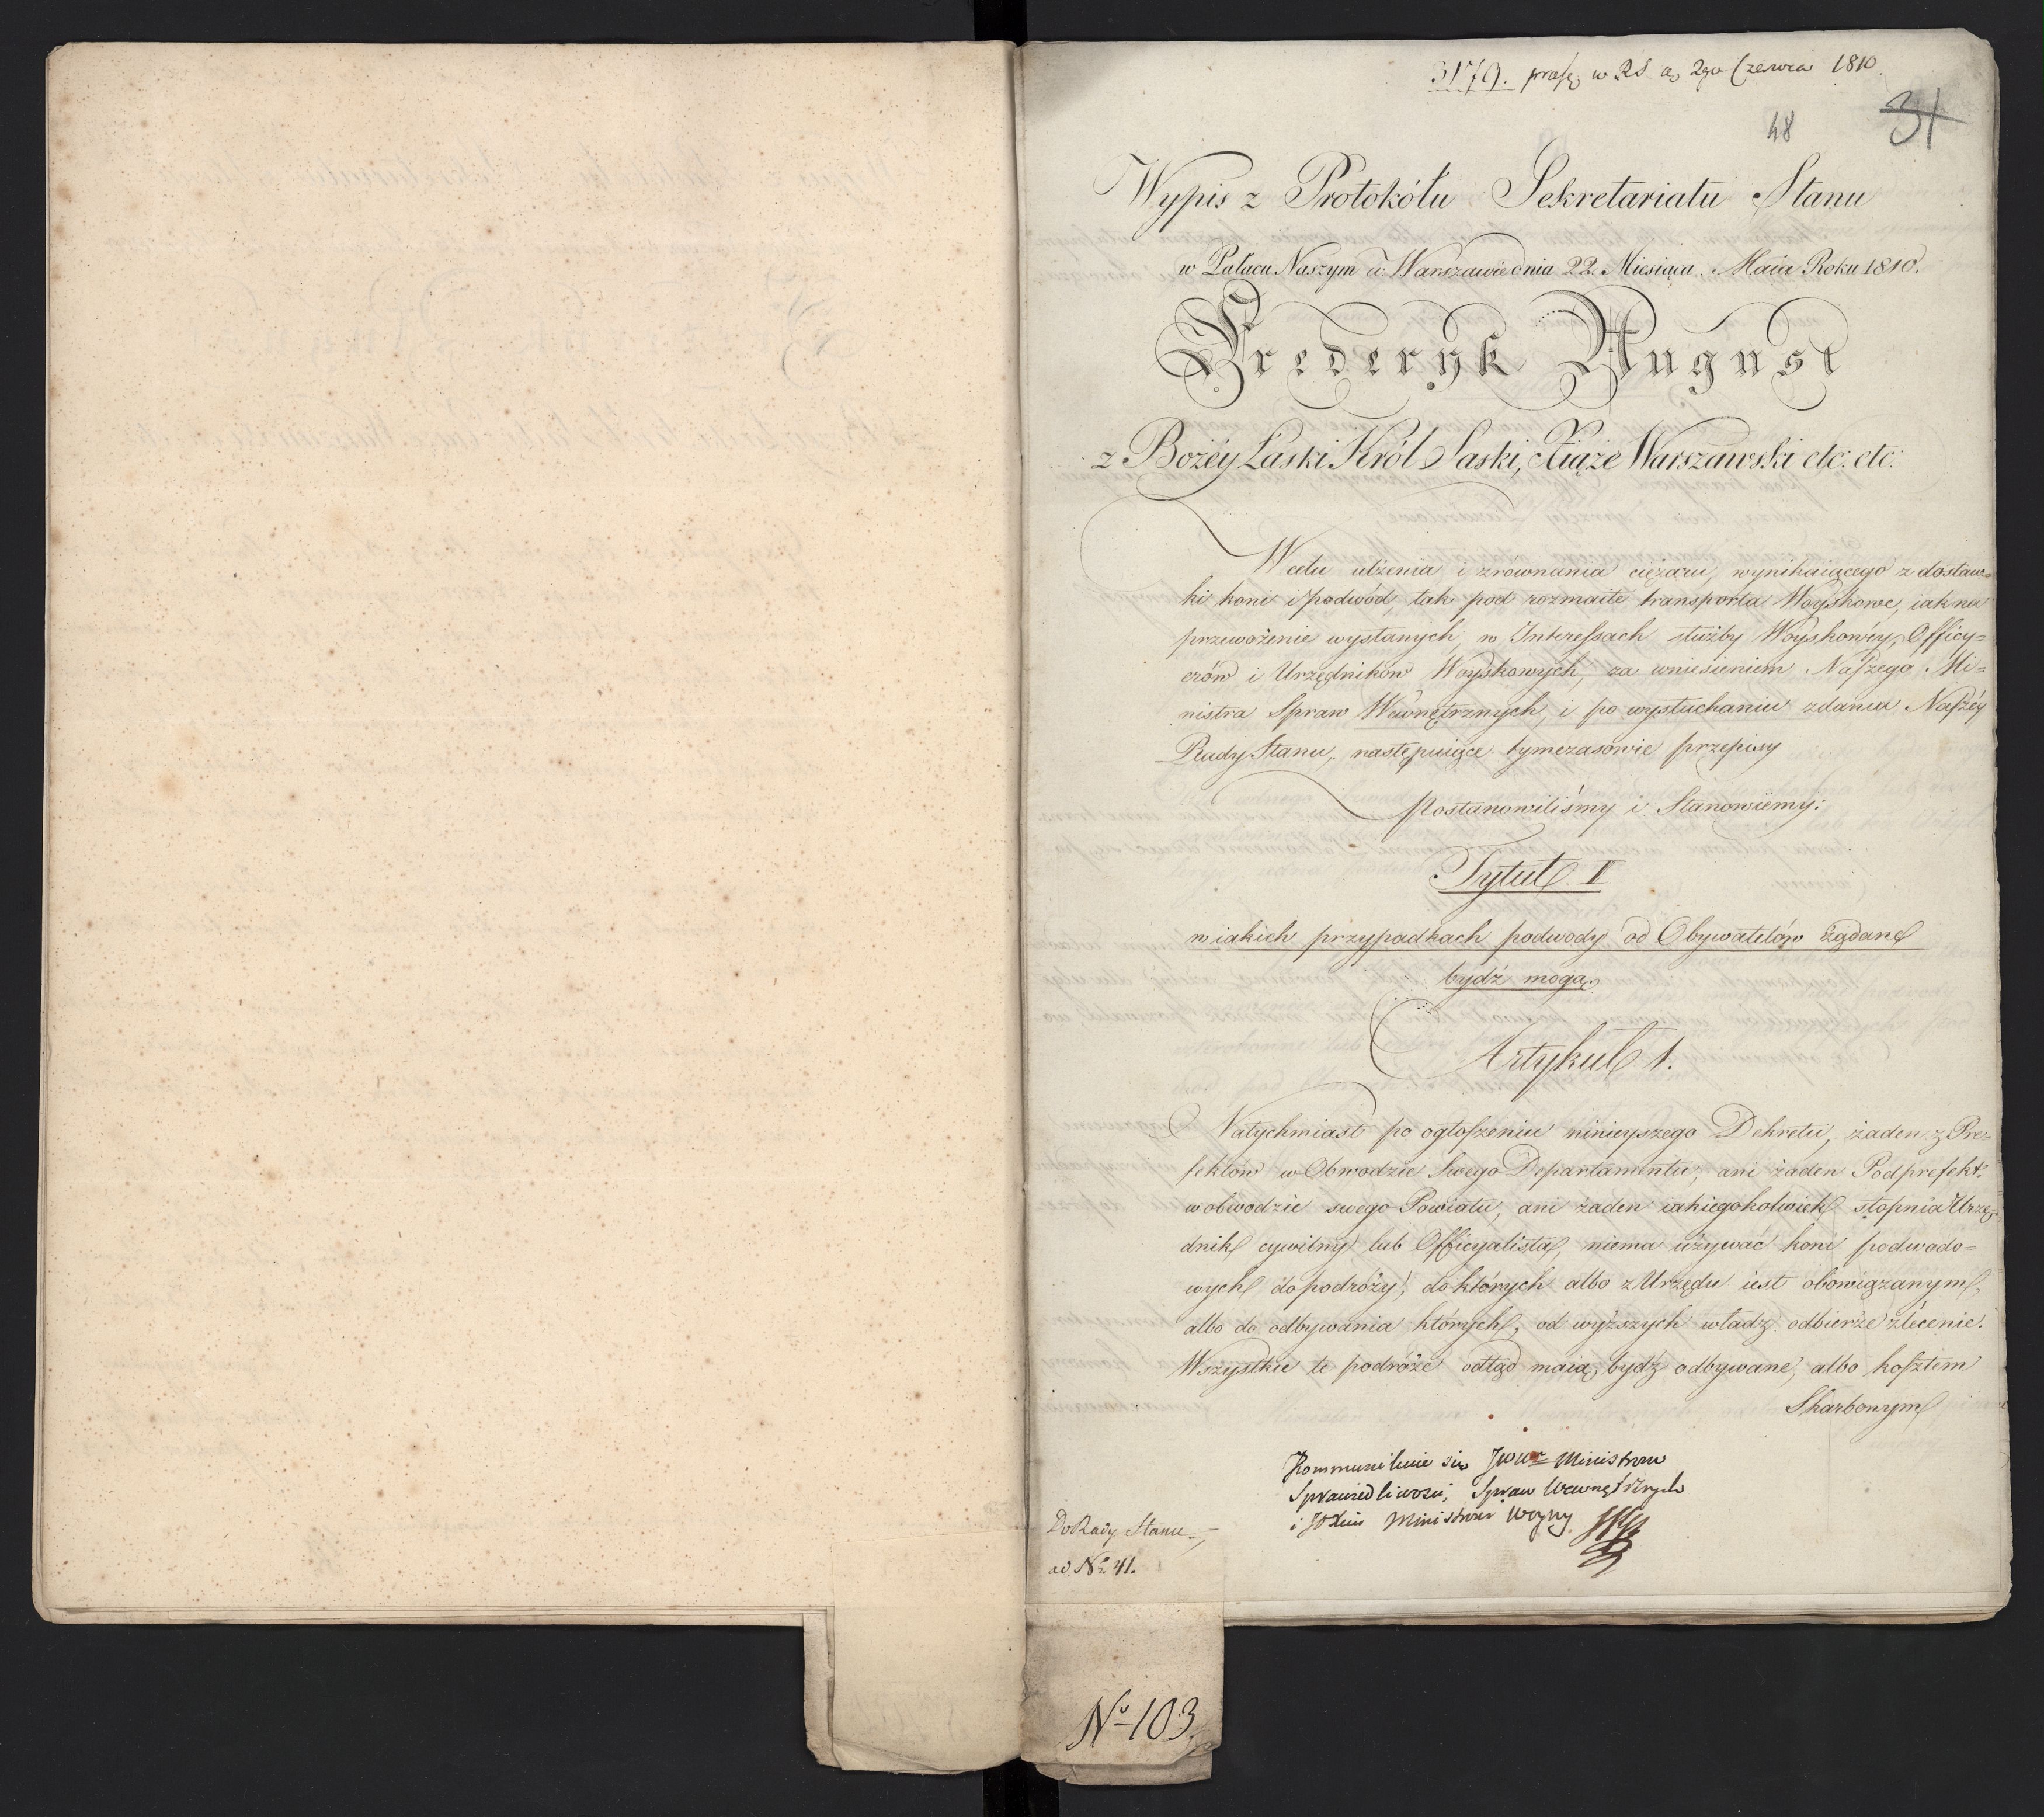 3179. præs. w RS d. 2go Czerwca 1810.
48 31
Wypis z Protokółu Sekretariatu Stanu
w Pałacu Naszym w Warszawie dnia 22. Miesiąca Maia Roku 1810.
Frederyk August
z Bożéy Łaski Król Saski, Xiąże Warszawski etc: etc:
W celu ulżenia i zrównania ciężaru, wynikaiącego z dostaw=
ki koni i podwód, tak pod rozmaite transporta Woyskowe, iak na
przewożenie wysłanych, w Interessach służby Woyskowéy, Officy=
erów i Urzędników Woyskowych, za wniesieniem Naszego Mi=
nistra Spraw Wewnętrznych, i po wysłuchaniu zdania Naszéy
Rady Stanu, następuiące tymczasowie przepisy
Postanowiliśmy i Stanowiemy:
Tytuł I
w iakich przypadkach podwody od Obywatelów żądane
bydź mogą.
Artykuł 1.
Natychmiast po ogłoszeniu ninieyszego Dekretu, żaden z Pre=
fektów w Obwodzie Swego Departamentu, ani żaden Podprefekt
w obwodzie swego Powiatu, ani żaden iakiegokolwiek stopnia Urzę=
dnik cywilny lub Officyalista, niema używać koni podwodo=
wych do podróży, do których albo z Urzędu iest obowiązanym,
albo do odbywania których, od wyższych władz odbierze zlecenie.
Wszystkie te podróże odtąd maią bydź odbywane, albo kosztem
Skarbowym
Kommunikuie się JWW Ministrom
Sprawiedliwości, Spraw Wewnętrznych
i JO Xciu Ministrowi Woyny
Do Rady Stanu
ad No 41.
No 103.